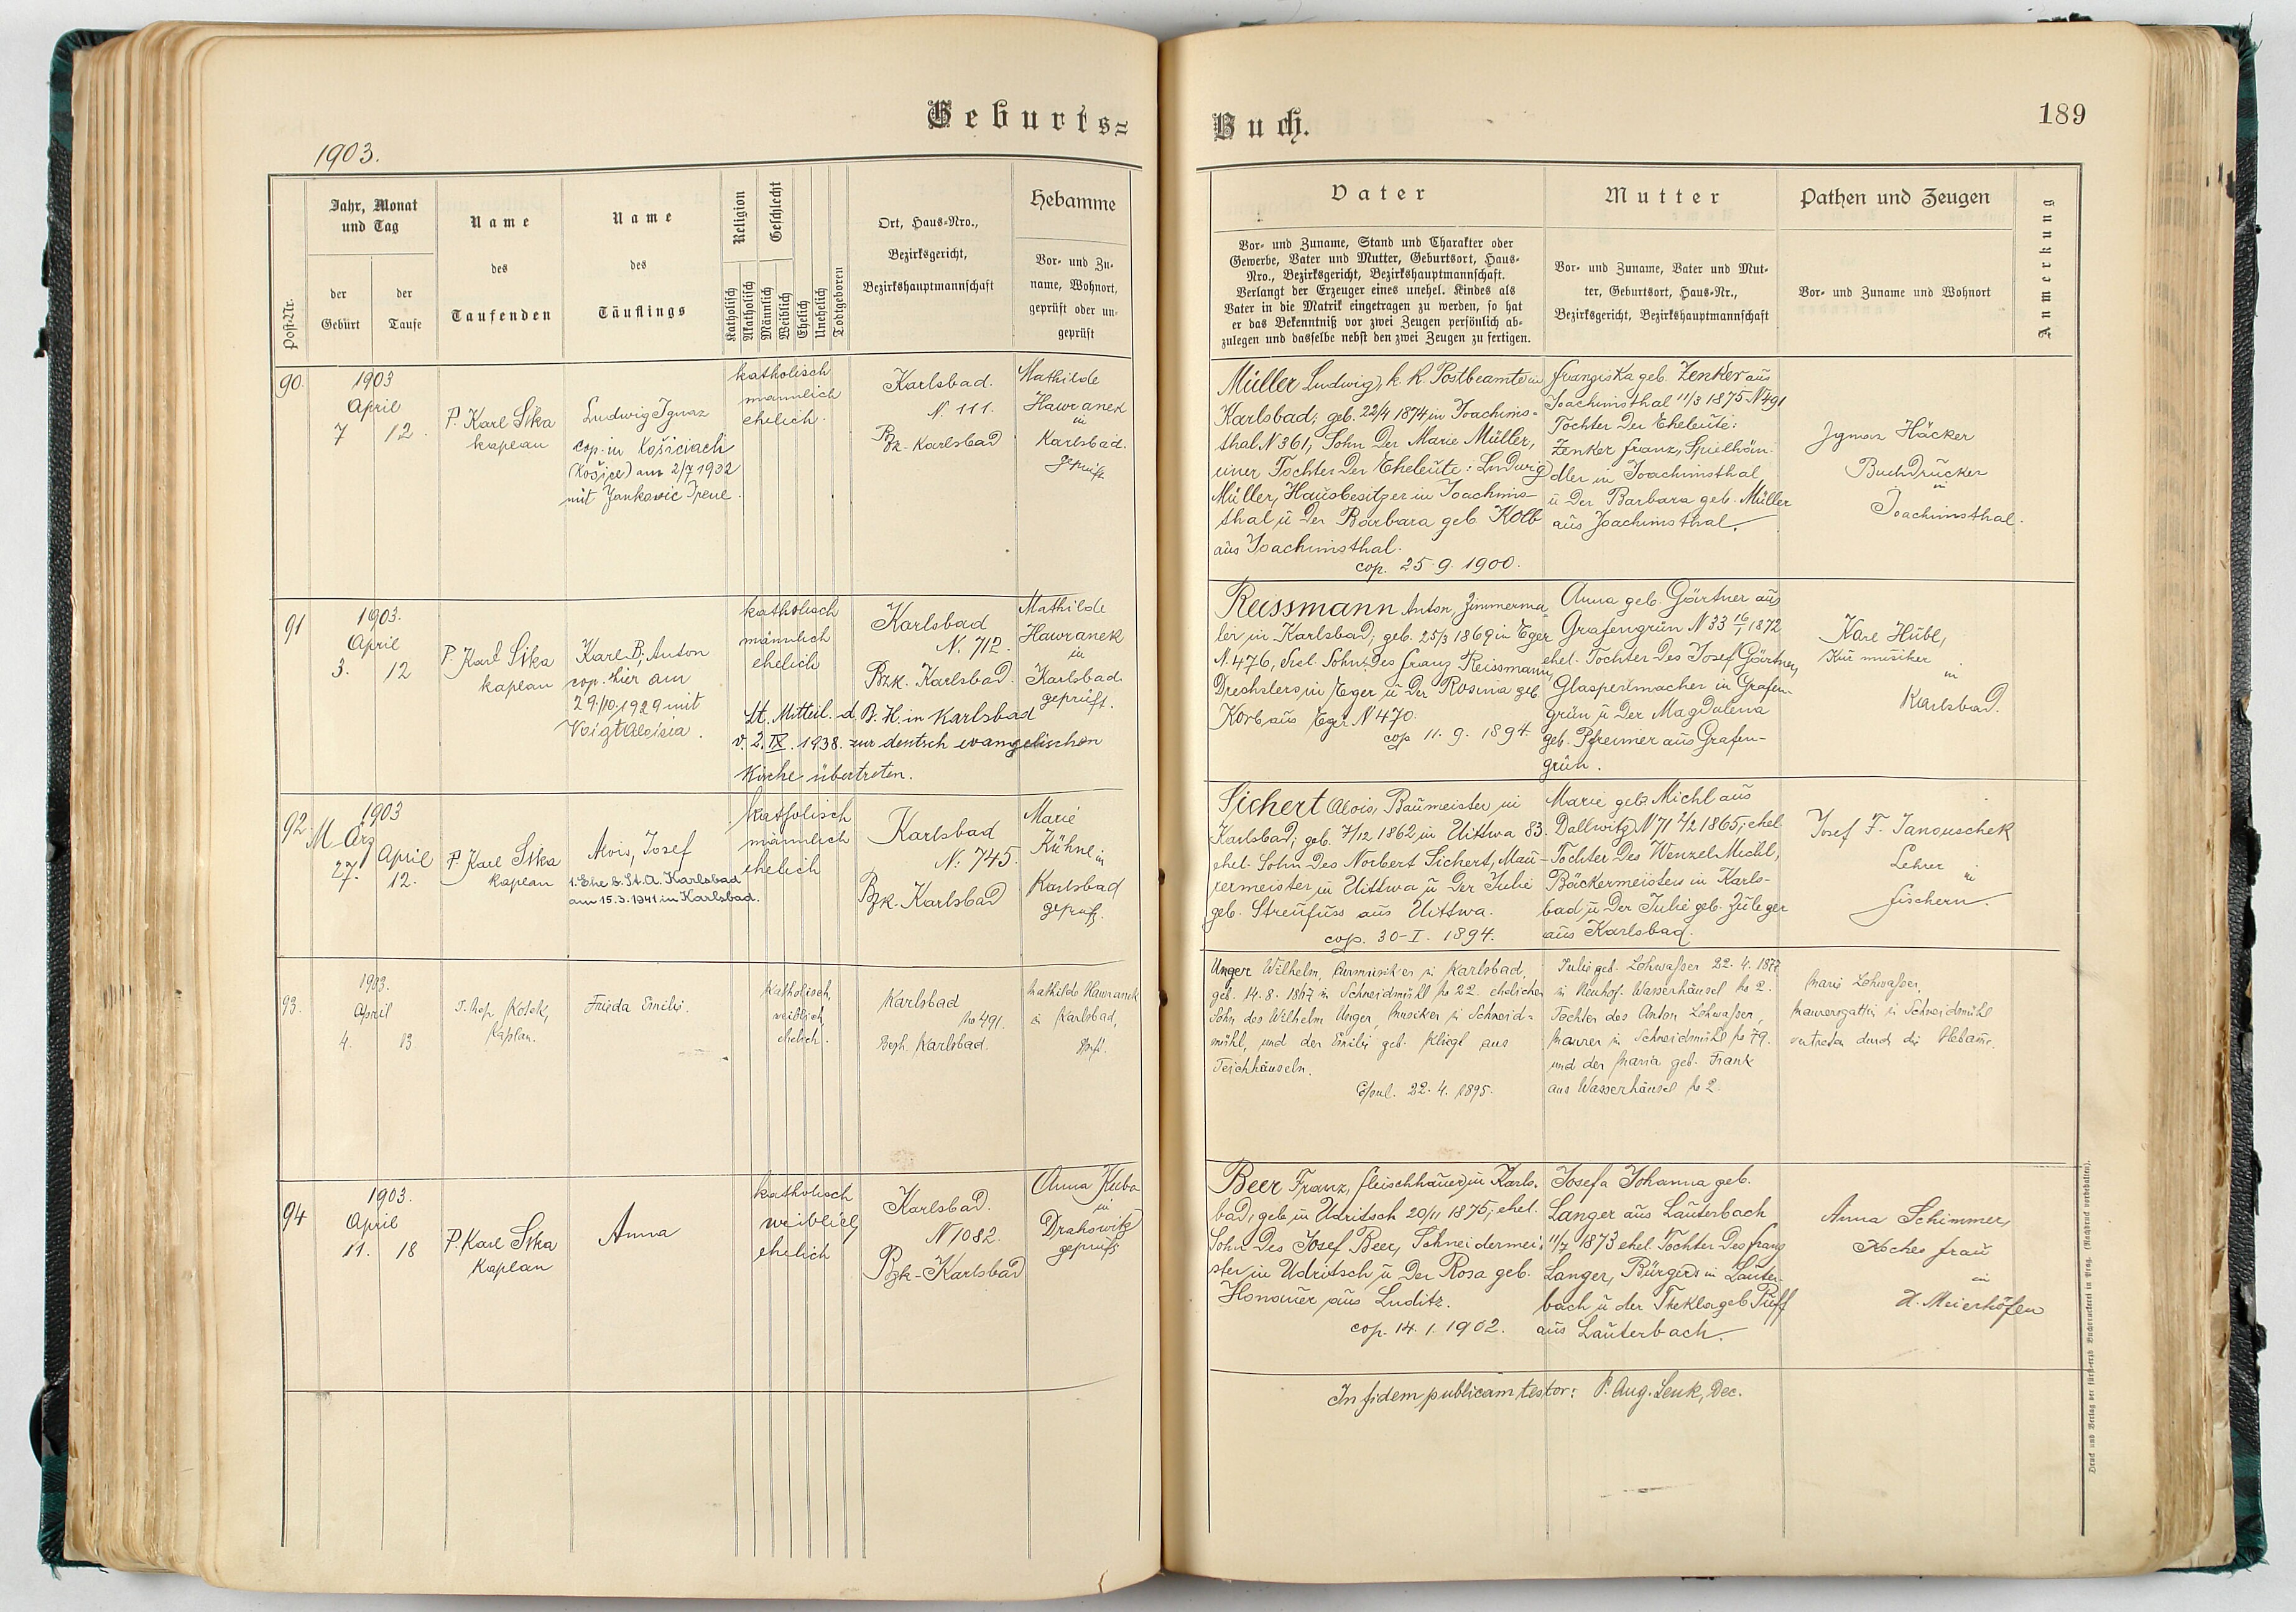 Geburts=
1903.
Jahr, Monat
und Tag
der
Geburt
der
Taufe
Post-Nr.
Name
des
Taufenden
Name
des
Täuflings
Religion
Geschlecht
Katholisch
Akatholisch
Männlich
Weiblich
Ehelich
Unehelich
Todtgeboren
Ort, Haus-Nro.,
Bezirksgericht,
Bezirkshauptmannschaft
Hebamme
Vor- und Zu-
name, Wohnort,
geprüft oder un-
geprüft
90.
1903
April
7 12.
P. Karl Sika
kaplan
Ludwig Ignaz
cop. in Košiciach
(Košice) am 2/7 1932
mit Jankovic Irene.
katholisch
männlich
ehelich.
Karlsbad.
N. 111.
Bz. Karlsbad
Mathilde
Hawranek
in
Karlsbad.
geprüft
91
1903.
April
3. 12
P. Karl Sika
kaplan
Karl B., Anton
cop. hier am
29./10. 1929 mit
Voigt Aloisia.
katholisch
männlich
ehelich
Karlsbad
N. 712.
Bzk. Karlsbad.
Mathilde
Hawranek
in
Karlsbad.
geprüft.
Lt. Mitteil. d. B. H. in Karlsbad
v. 2. IX. 1938. zur deutsch evangelischen
Kirche übertreten.
92.
1903
März
27. April
12.
P. Karl Sika
kaplan
Alois, Josef
1. Ehe b. St. A. Karlsbad
am 15. 3. 1941 in Karlsbad.
katholisch
männlich
ehelich
Karlsbad
N. 745.
Bzk. Karlsbad
Marie
Kühnl in
Karlsbad
geprüft.
93.
1903.
April
4. 13
Kaplan.
Frieda Emilie.
Katholisch,
weiblich,
ehelich.
Karlsbad
No 491.
Bzgh. Karlsbad.
Mathilde Hawranek
in Karlsbad,
gepr.
94
1903.
April
11. 18
P. Karl Sika
Kaplan
Anna
katholisch
weiblich
ehelich
Karlsbad.
N 1082.
Bzk. Karlsbad
Anna Kuba
in
Drahowitz
geprüft
Buch.
189
Vater
Vor- und Zuname, Stand und Charakter oder
Gewerbe, Vater und Mutter, Geburtsort, Haus-
Nro., Bezirksgericht, Bezirkshauptmannschaft.
Verlangt der Erzeuger eines unehel. Kindes als
Vater in die Matrik eingetragen zu werden, so hat
er das Bekenntniß vor zwei Zeugen persönlich ab-
zulegen und dasselbe nebst den zwei Zeugen zu fertigen.
Mutter
Vor- und Zuname, Vater und Mut-
ter, Geburtsort, Haus-Nr.,
Bezirksgericht, Bezirkshauptmannschaft
Pathen und Zeugen
Vor- und Zuname und Wohnort
Anmerkung
Müller Ludwig, k. k. Postbeamte in
Karlsbad; geb. 22/4 1874, in Joachims-
thal N 361, Sohn der Marie Müller,
einer Tochter der Eheleute: Ludwig
Müller, Hausbesitzer in Joachims-
thal u der Barbara geb. Kolb
aus Joachimsthal.
cop. 25. 9. 1900.
Franziska geb. Zenker aus
Joachimsthal 11/3 1875 N 491
Tochter der Eheleute:
Zenker Franz, Spielhän-
dler in Joachimsthal
u der Barbara geb. Müller
aus Joachimsthal.
Ignaz Häcker
Buchdrucker
in
Joachimsthal.
Reissmann Anton, Zimmerma-
ler in Karlsbad; geb. 25/3 1869 in Eger
N. 476, ehel. Sohn des Franz Reissmann,
Drechslers in Eger u der Rosina geb.
Korb aus Eger N 470.
cop 11. 9. 1894.
Anna geb. Gärtner aus
Grafengrün N 33 16/1 1872
ehel. Tochter des Josef Gärtner,
Glasperlmacher in Grafen-
grün u der Magdalena
geb. Pfreimer aus Grafen-
grün.
Karl Hübl,
Kur musiker
in
Karlsbad.
Sichert Alois, Baumeister in
Karlsbad; geb. 7/12 1862 in Uittwa 83.
ehel. Sohn des Norbert Sichert, Mau-
rermeister in Uittwa u der Julie
geb. Streufuss aus Uittwa.
cop. 30-I. 1894.
Marie geb. Michl aus
Dallwitz N 71 2/2 1865; ehel
Tochter des Wenzel Michl,
Bäckermeisters in Karls-
bad u der Julie geb. Zuleger
aus Karlsbad.
Josef F. Janouschek
Lehrer
in
Fischern.
Unger Wilhelm, Kurmusiker in Karlsbad,
geb. 14. 8. 1867 in Schneidmühl No 22. ehelicher
Sohn des Wilhelm Unger, Musiker in Schneid-
mühl, und der Emilie geb. Kliegl aus
Teichhäuseln.
Copul. 22. 4. 1895.
Julie geb. Lohwasser 22. 4. 1877
in Neuhof. Wasserhäusel No 2.
Tochter des Anton Lohwasser,
Maurer in Schneidmühl No 79.
und der Maria geb. Frank
aus Wasserhäusel No 2.
Marie Lohwasser,
Maurersgattin in Schneidmühl
vertreten durch die Hebamme.
Beer Franz, Fleischhauer in Karls-
bad; geb. in Udritsch 20/11 1875; ehel.
Sohn des Josef Beer, Schneidermei-
ster in Udritsch u der Rosa geb.
Honauer aus Luditz.
cop. 14. 1. 1902.
Josefa Johanna geb.
Langer aus Lauterbach
11/7 1873 ehel. Tochter des Franz
Langer, Bürgers in Lauter-
bach u der Thekla geb. Puff
aus Lauterbach.
Anna Schimmer,
Koches frau
in
H. Meierhöfen
In fidem publicam testor: P. Aug. Lenk, Dec.
Druck und Verlag der fürst-erzb Buchdruckerei in Prag. (Nachdruck vorbehalten).